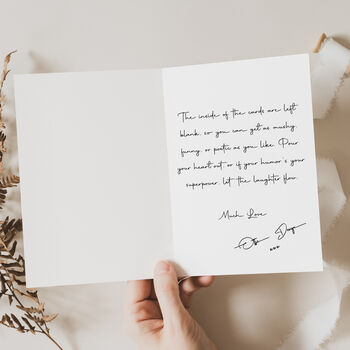 The inside of the cards are left
blank so you can get as mushy,
funny or poetic as you like. Pour
your heart out or if your humor's your
superpower, let the laughter flow.
Much Love